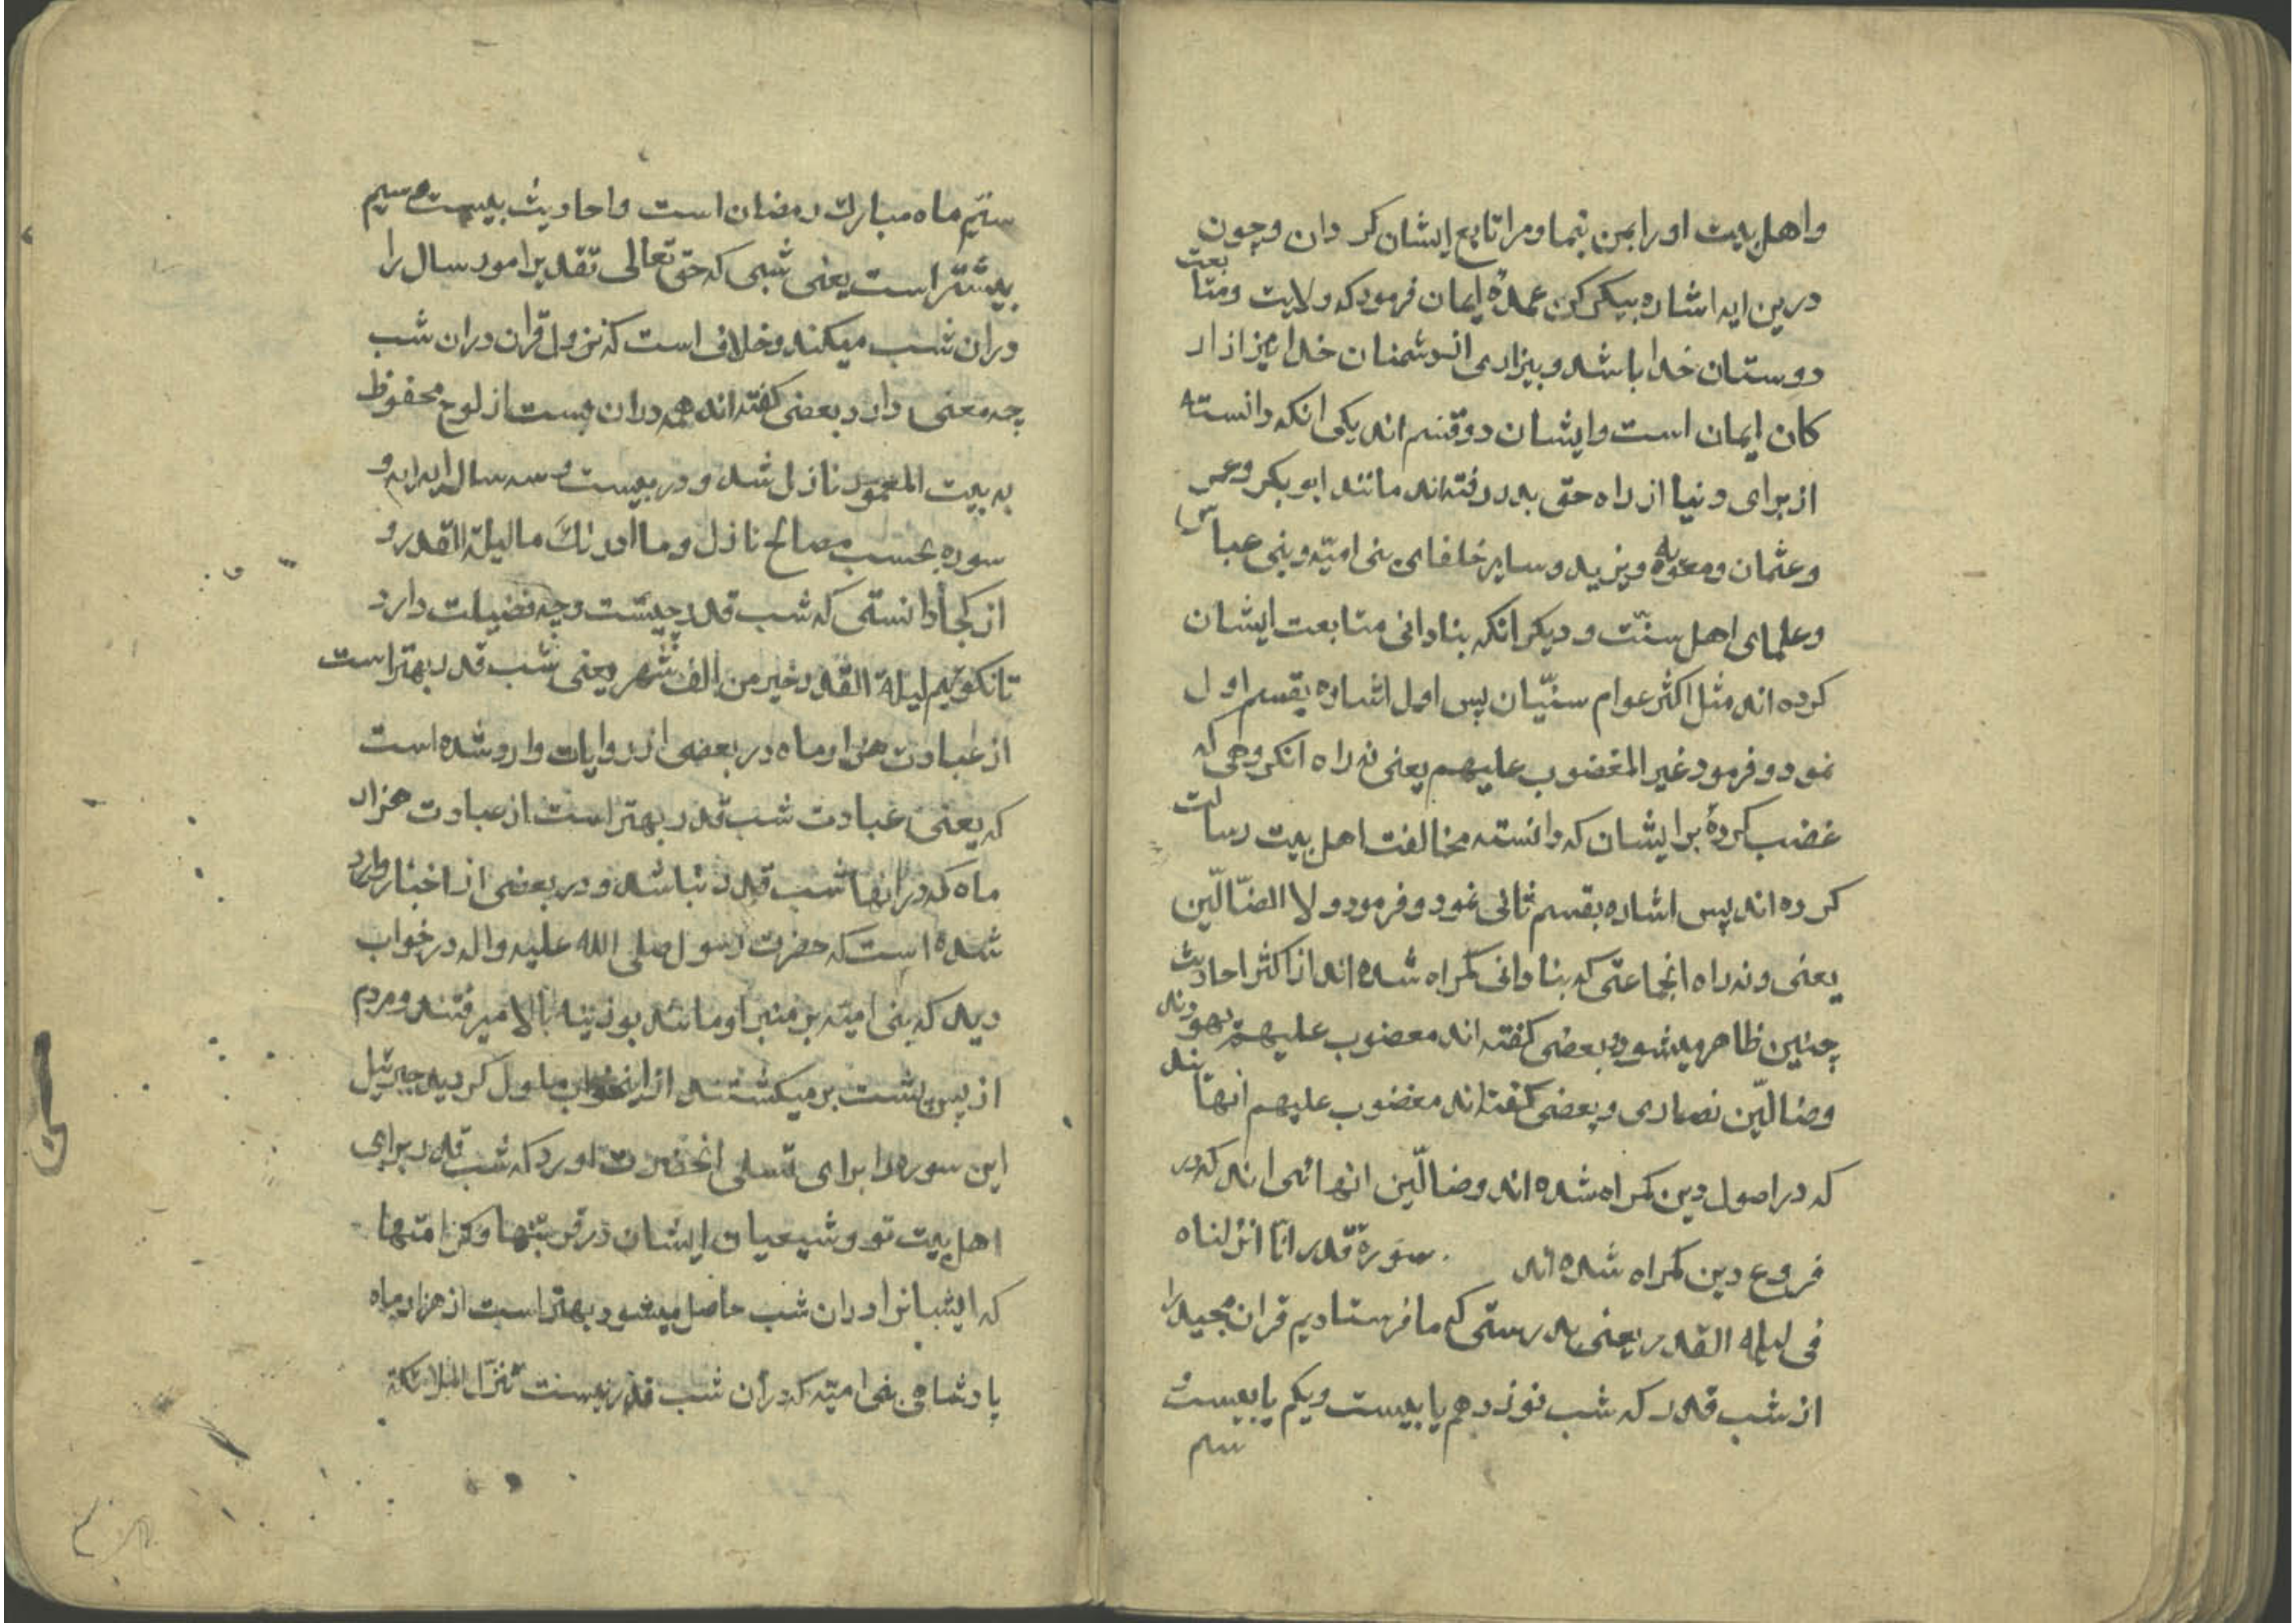 واهل بیت او را بمن بنما و مرا تابع ایشان کردان و چون
درین ایه اشاره بیکرکن عمدهٔ ایمان فرمود که ولایت ومتابعت
دوستان خدا باشد و بیزاری از دشمنان خدا نیز از ار
کان ایمان است وایشان دو قسم اند یکی انکه دانسته
از برای دنیا از راه حق بدر رفته اند مانند ابو بکر وعمر
وعثمان ومعویه ویزید وسایر خلفای بنی امیّه وبنی عباس
وعلمای اهل سنّت و دیکر انکه بنادانی متابعت ایشان
کرده اند مثل اکثر عوام سنّیان پس اول اشاره بقسم اول
نمود و فرمود غیر المغضوب علیهم یعنی نه راه انکروهی که
غضب کردهٔ بر ایشان که دانسته مخالفت اهل بیت رسالت
کرده اند پس اشاره بقسم ثانی نمود و فرمود ولا الضّالّین
یعنی ونه راه انجماعتی که بنادانی کمراه شده اند از اکثر احادیث
چنین ظاهر میشود وبعضی کفته اند مغضوب علیهم یهودند
وضالّین نصاری وبعضی کفته اند مغضوب علیهم انهایند
که در اصول دین کمراه شده اند وضالّین انهائی اند که در
فروع دین کمراه شده اند سورهٔ قدر انّا انزلناه
فی لیلة القدر یعنی بدرستی که ما فرستادیم قران مجید را
از شب قدر که شب نوزدهم یا بیست ویکم یا بیست و
سیم
سیّم ماه مبارک رمضان است واحادیث بیست وسیم
بیشتر است یعنی شبی که حق تعالی تقدیر امور سال را
دران شب میکند وخلاف است که نزول قران دران شب
چه معنی دارد بعضی کفته اند همه دران شب از لوح محفوظ
به بیت المعمور نازل شد ودر بیست و سه سال ایه ایه و
سوره بحسب مصالح نازل وما ادرٰک ما لیلة القدر و
از کجا دانستی که شب قدر چیست وچه فضیلت دارد
تا نکوئیم لیلة القدر خیر من الف شهر یعنی شب قدر بهتر است
از عبادت هزار ماه در بعضی از روایات وارد شده است
که یعنی عبادت شب قدر بهتر است از عبادت هزار
ماه که در انها شب قدر نباشد ودر بعضی از اخبار وارد
شده است که حضرت رسول صلی الله علیه واله در خواب
دید که بنی امیّه بر منبر او مانند بوزینه بالا میرفتند ومردم
از پس پشت بر میکشتند از این خواب ملول کردید جبرئیل
این سوره را برای تسلی انحضرت اورد که شب قدر برای
اهل بیت تو وشیعیان ایشان در قربتها وکرامتها
که ایشانرا دران شب حاصل میشود بهتر است از هزار ماه
پادشاهی بنی امیّه که دران شب قدر نیست تنزّل الملائکة